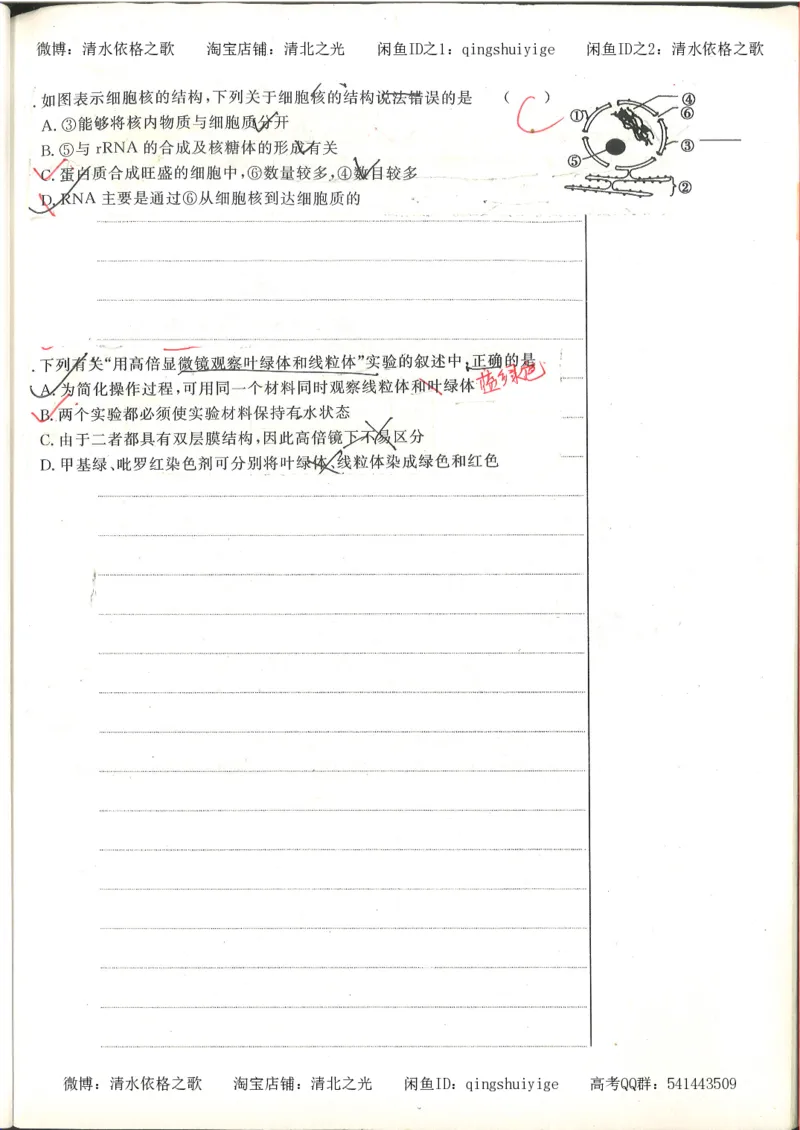 微博：清水依格之歌 淘宝店铺：清北之光 闲鱼ID之1：qingshuiyige 闲鱼ID之2：清水依格之歌
.如图表示细胞核的结构，下列关于细胞核的结构说法错误的是 （ ）
C.
A. ③能够将核内物质与细胞质分开
B. ⑤与 rRNA 的合成及核糖体的形成有关
C. 蛋白质合成旺盛的细胞中，⑥数量较多，④数目较多
D. RNA 主要是通过⑥从细胞核到达细胞质的
①
④
⑥
③
⑤
②
.下列有关“用高倍显微镜观察叶绿体和线粒体”实验的叙述中，正确的是
A. 为简化操作过程，可用同一个材料同时观察线粒体和叶绿体
B. 两个实验都必须使实验材料保持有水状态
C. 由于二者都具有双层膜结构，因此高倍镜下不易区分
D. 甲基绿、吡罗红染色剂可分别将叶绿体、线粒体染成绿色和红色
微博：清水依格之歌 淘宝店铺：清北之光 闲鱼ID：qingshuiyige 高考QQ群：541443509